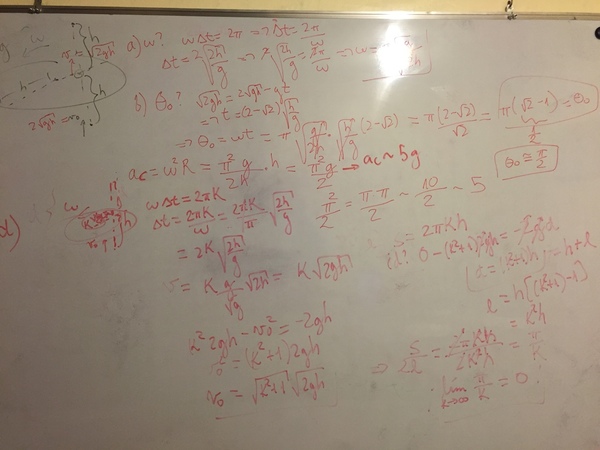 a) w? wΔt = 2π ⇒ Δt = 2π/w
Δt = 2√(2h/g) ⇒ 2√(2h/g) = 2π/w ⇒ w =
2√gh = v₀
b) θ₀? √2gh = 2√gh - gt
⇒ t = (2-√2)√(h/g)
⇒ θ₀ = wt = π √(g/2h) √(h/g) (2-√2) = π(2-√2)/√2 = π(√2-1) = θ₀
1/2
θ₀ ≅ π/2
ac = w²R = π²g/2h · h = π²g/2 → ac ~ 5g
π²/2 = π·π/2 ~ 10/2 ~ 5
wΔt = 2πK
Δt = 2πK/w = 2πK/π √(2h/g)
= 2K √(2h/g)
v = K g/√g √2h = K √2gh
K² 2gh - v₀² = -2gh
v₀² = (K²+1) 2gh
v₀ = √K²+1 √2gh
S = 2πKh
d? 0 - (K²+1)2gh = -2gd
d = (K²+1)h = h + l
l = h[(K²+1)-1]
= K²h
⇒ S/2l = 2πKh/2K²h = π/K
lim K→∞ π/K = 0!